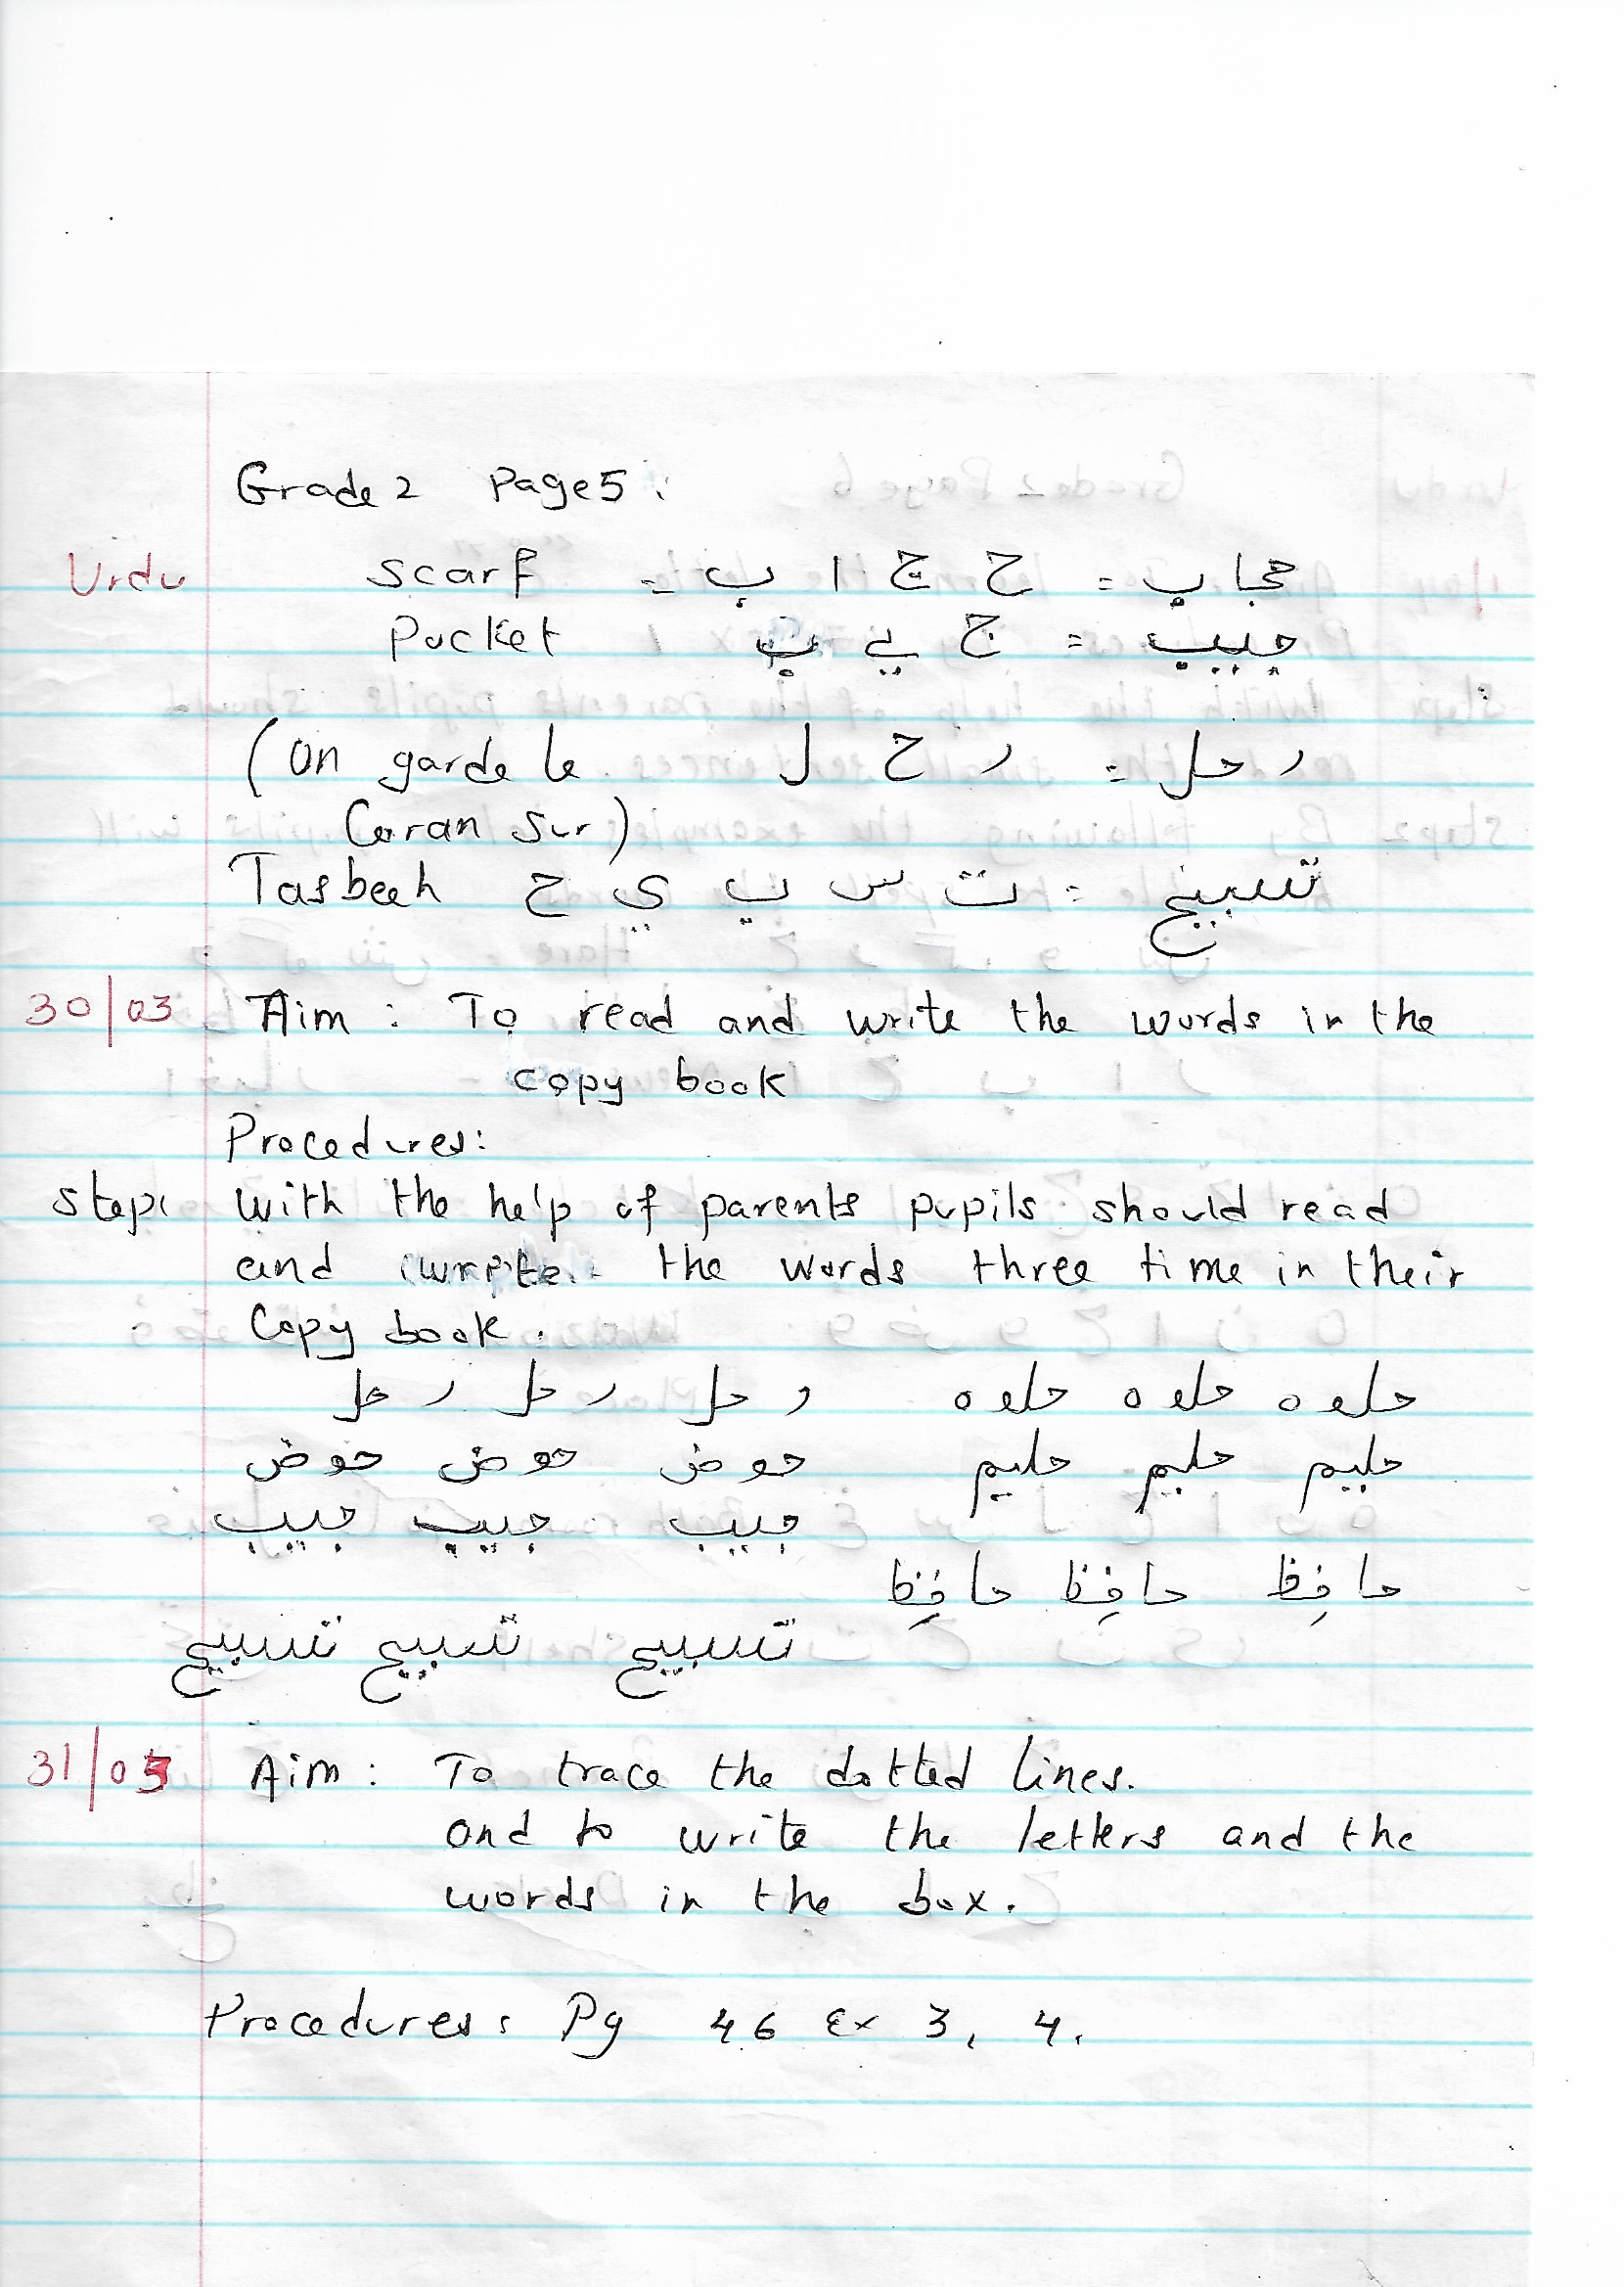 Grade 2 Page 5:
Urdu scarf = ح ج ا ب = حجاب
Pocket ج ي ب = جيب
(on garde le ر ح ل = رحل
Coran sur)
Tasbeeh ت س ب ي ح = تسبيح
30/03 Aim : To read and write the words in the
copy book
Procedures:
Step1 With the help of parents pupils should read
and write the words three time in their
Copy book.
حلوه حلوه حلوه رحل رحل رحل
حليم حليم حليم حوض حوض حوض
جيب جيب جيب
حافِظ حافِظ حافِظ
تسبيح تسبيح تسبيح
31/03 Aim : To trace the dotted lines.
and to write the letters and the
words in the box.
Procedures: Pg 46 Ex 3, 4.